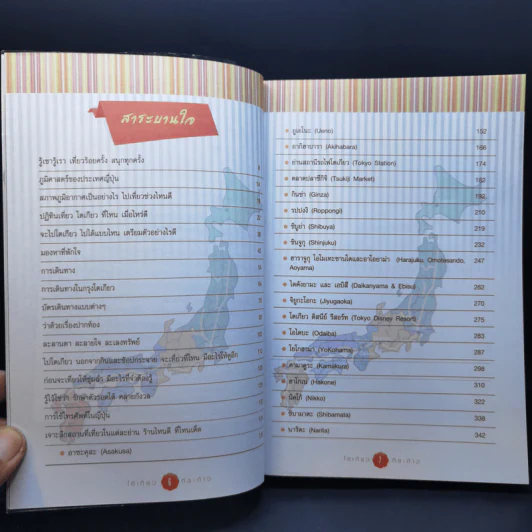 สาระบานใจ
รู้เขารู้เรา เที่ยวร้อยครั้ง สนุกทุกครั้ง
ภูมิศาสตร์ของประเทศญี่ปุ่น
สภาพภูมิอากาศเป็นอย่างไร ไปเที่ยวช่วงไหนดี
ปฏิทินเที่ยว โตเกียว ที่ไหน เมื่อไหร่ดี
จะไปโตเกียว ไปได้แบบไหน เตรียมตัวอย่างไรดี
มองหาที่พักใจ
การเดินทาง
การเดินทางในกรุงโตเกียว
บัตรเดินทางแบบต่างๆ
ว่าด้วยเรื่องปากท้อง
ละลานตา ละลายใจ ละเลงทรัพย์
ไปโตเกียว นอกจากกินและช้อปกระจาย จะเที่ยวที่ไหน มีอะไรให้ดูอีก
ก่อนจะเที่ยวให้ชุ่มฉ่ำ มีอะไรที่จำต้องรู้
รู้ไว้ใช่ว่า
การใช้โทรศัพท์ในญี่ปุ่น
เจาะลึกสถานที่เที่ยวในแต่ละย่าน ร้านไหนดี ที่ไหนเด็ด
อาซะคุสะ (Asakusa)
โตเกียว 6 ติล-ต่าง
อูเอโนะ (Ueno) 152
อากิฮาบารา (Akihabara) 166
ย่านสถานีรถไฟโตเกียว (Tokyo Station) 174
ตลาดปลาซึกิจิ (Tsukiji Market) 182
กินซ่า (Ginza) 192
รปปงงิ (Roppongi) 210
ชิบูย่า (Shibuya) 219
ชินจูกุ (Shinjuku) 232
ฮาราจูกุ โอโมเตะซานโดและอาโอยาม่า (Harajuku, Omotesando, 247
Aoyama)
ไดคังยามะ และ เอบิสึ (Daikanyama & Ebisu) 262
จิยูกะโอกะ (Jiyugaoka) 270
โตเกียว ดิสนีย์ รีสอร์ท (Tokyo Disney Resort) 275
โอไดบะ (Odaiba) 283
โยโกฮาม่า (YoKohama) 287
คามาคุระ (Kamakura) 298
ฮาโกเน่ (Hakone) 310
นิคโก้ (Nikko) 322
ชิบามาตะ (Shibamata) 338
นาริตะ (Narita) 342
โตเกียว 7 ติล-ต่าง